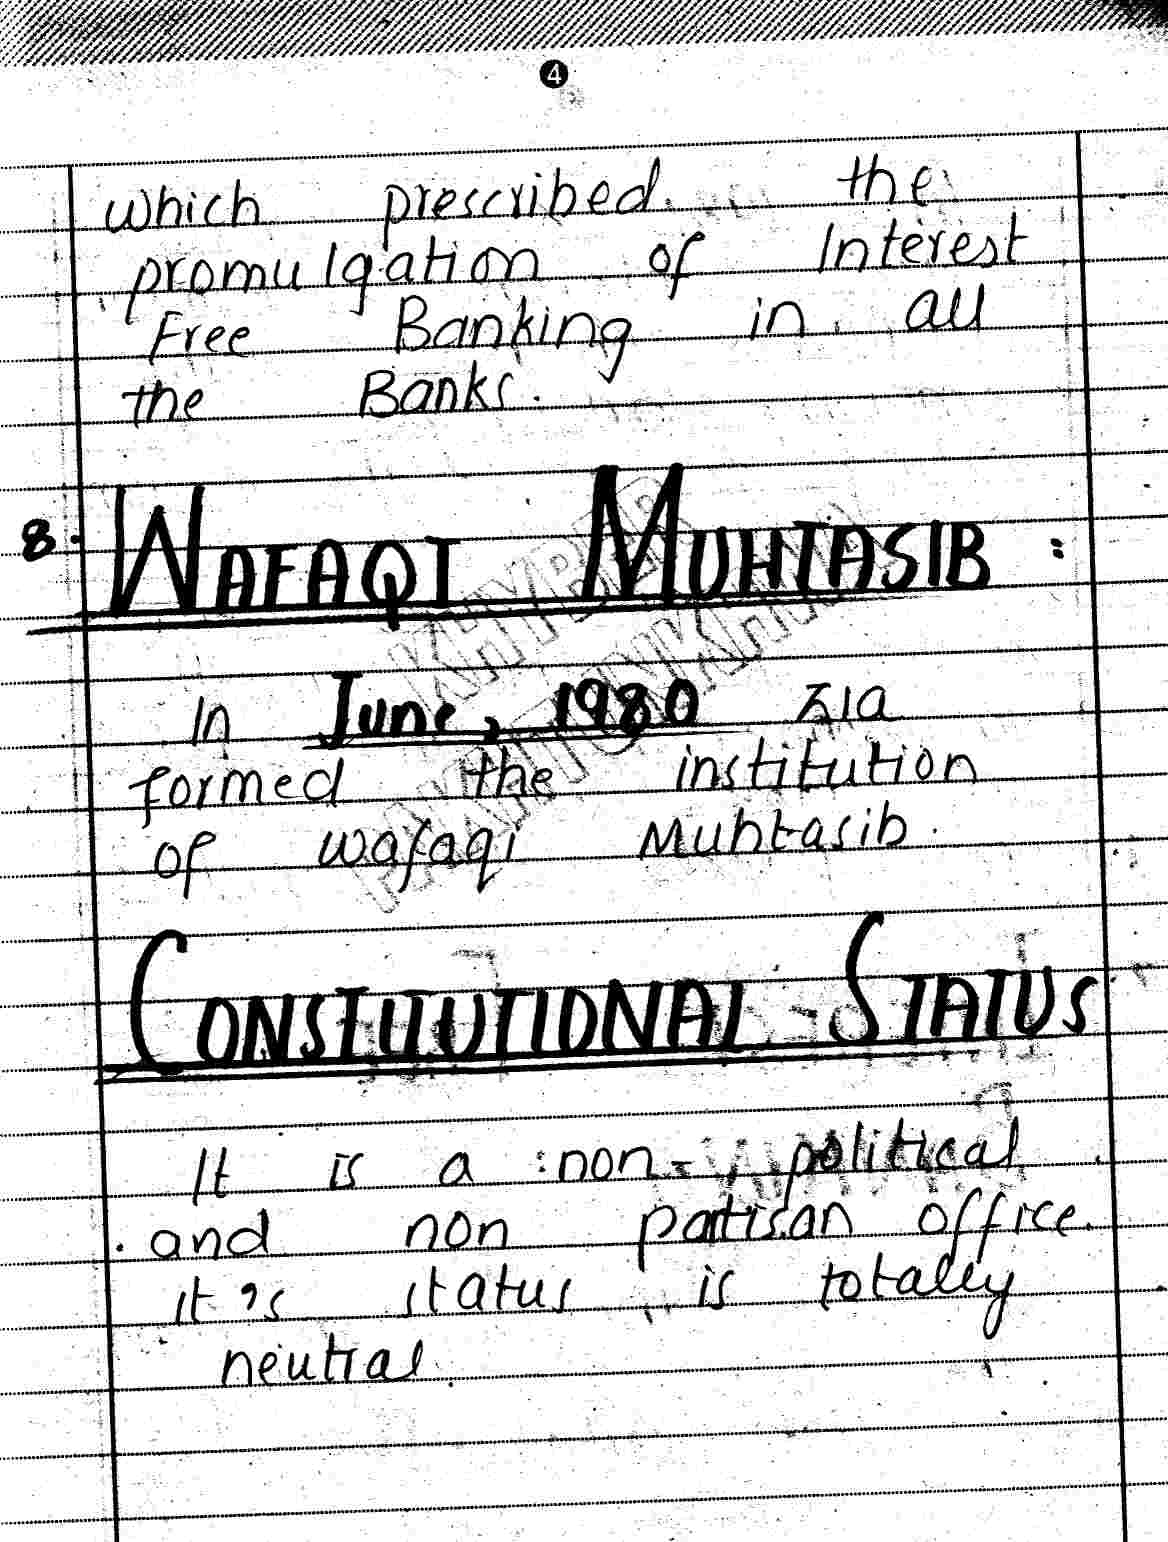 4
which prescribed the
promulgation of Interest
Free Banking in all
the Banks.
8. WAFAQI MUHTASIB :
In June, 1980 Zia
formed the institution
of wafaqi Muhtasib.
CONSTITUTIONAL STATUS
It is a non-political
and non partisan office.
it's status is totally
neutral.
KHYBER
PAKHTUNKHWA